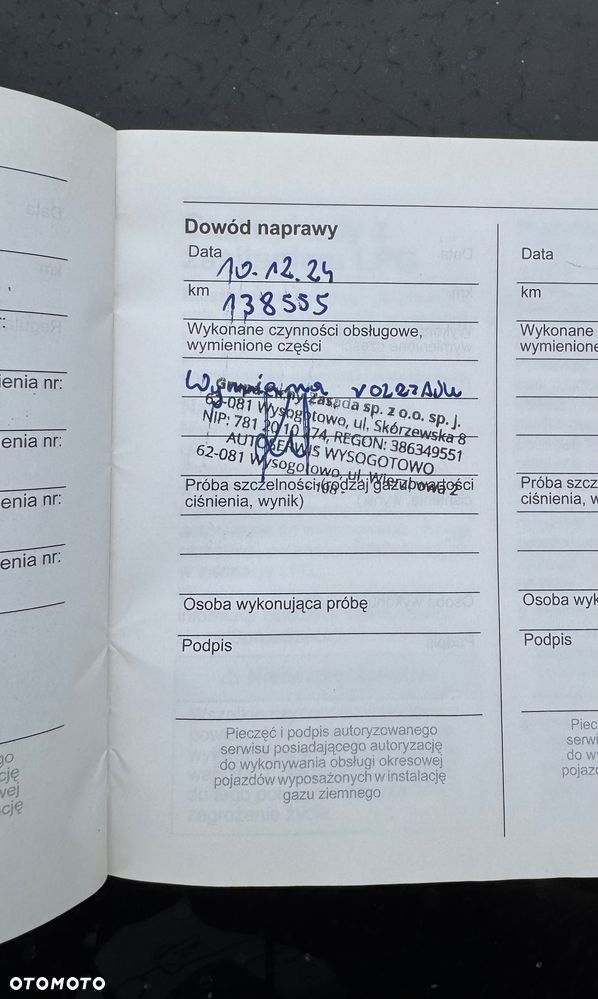 Dowód naprawy
Data
10.12.24
km
138555
Wykonane czynności obsługowe,
wymienione części
Wymiana rozrządu
Zasada sp. z o.o. sp. j.
62-081 Wysogotowo, ul. Skórzewska 8
NIP: 781 20 10 274, REGON: 386349551
AUTOSERWIS WYSOGOTOWO
62-081 Wysogotowo, ul. Wierzbowa 2
- 108 -
Próba szczelności (rodzaj gazu, wartości
ciśnienia, wynik)
Osoba wykonująca próbę
Podpis
Pieczęć i podpis autoryzowanego
serwisu posiadającego autoryzację
do wykonywania obsługi okresowej
pojazdów wyposażonych w instalację
gazu ziemnego
Data
km
Wykonane
wymienione
Próba szcz
ciśnienia, w
Osoba wyk
Podpis
Piec
serwi
do w
pojazd
ienia nr:
enia nr:
enia nr:
enia nr:
OTOMOTO